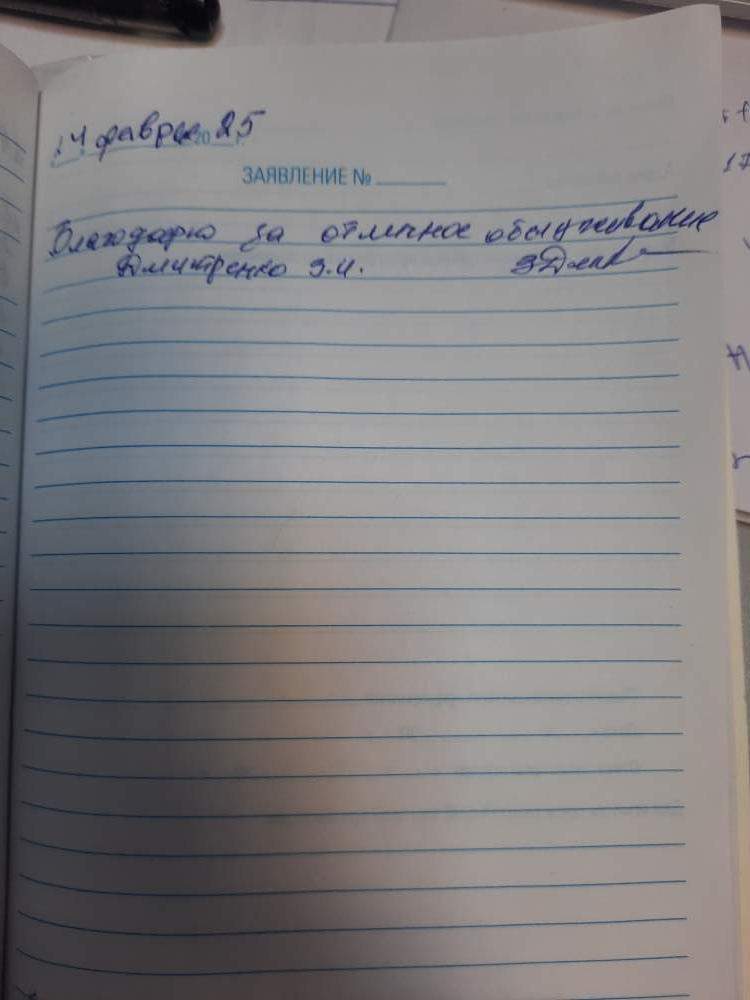 14 февраля 2025 г.
ЗАЯВЛЕНИЕ № ______
Благодарю за отличное обслуживание
Дмитренко З.И.